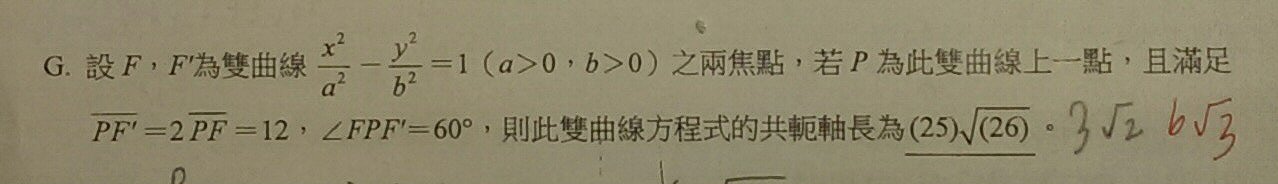 G. 設 F，F'為雙曲線 x²/a² − y²/b² ＝1（a>0，b>0）之兩焦點，若 P 為此雙曲線上一點，且滿足
PF'＝2PF＝12，∠FPF'＝60°，則此雙曲線方程式的共軛軸長為(25)√(26)。3√2 6√3